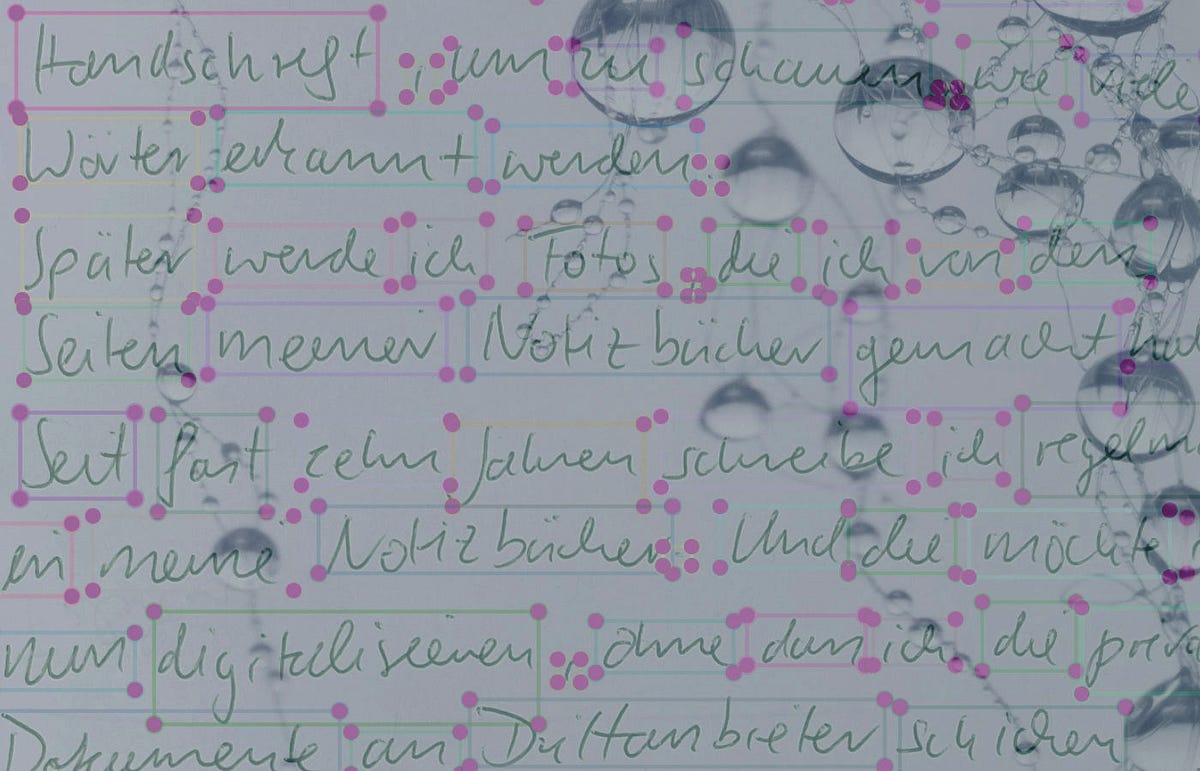 Handschrift, um zu schauen, wie viele
Wörter erkannt werden.
Später werde ich Fotos, die ich von den
Seiten meiner Notizbücher gemacht
Seit fast zehn Jahren schreibe ich regelm
in meine Notizbücher. Und die möchte
nun digitalisieren, ohne dass ich die
Dokumente an Drittanbieter schicken